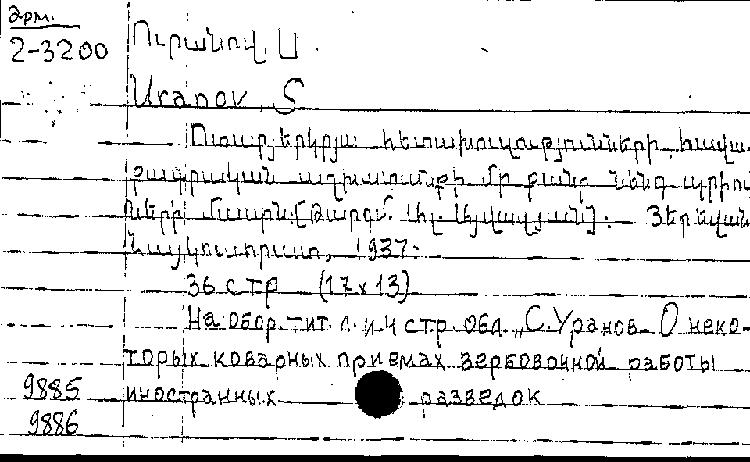 Арм.
2-3200
Ուրանով, Ս.
Uranov, S
Օտարյերկրյա հետախուզությունների հավա-
քագրական աշխատանքի մի քանի նենգ պրիոմ-
ների մասին [Թարգմ. Այվազյան]: Յերեվան
Հայկուսհրատ, 1937:
36 стр (17х13)
На обор. тит. л. и 4 стр. обл. „С. Уранов О неко-
торых коварных приемах вербовочной работы
иностранных разведок
9885
9886